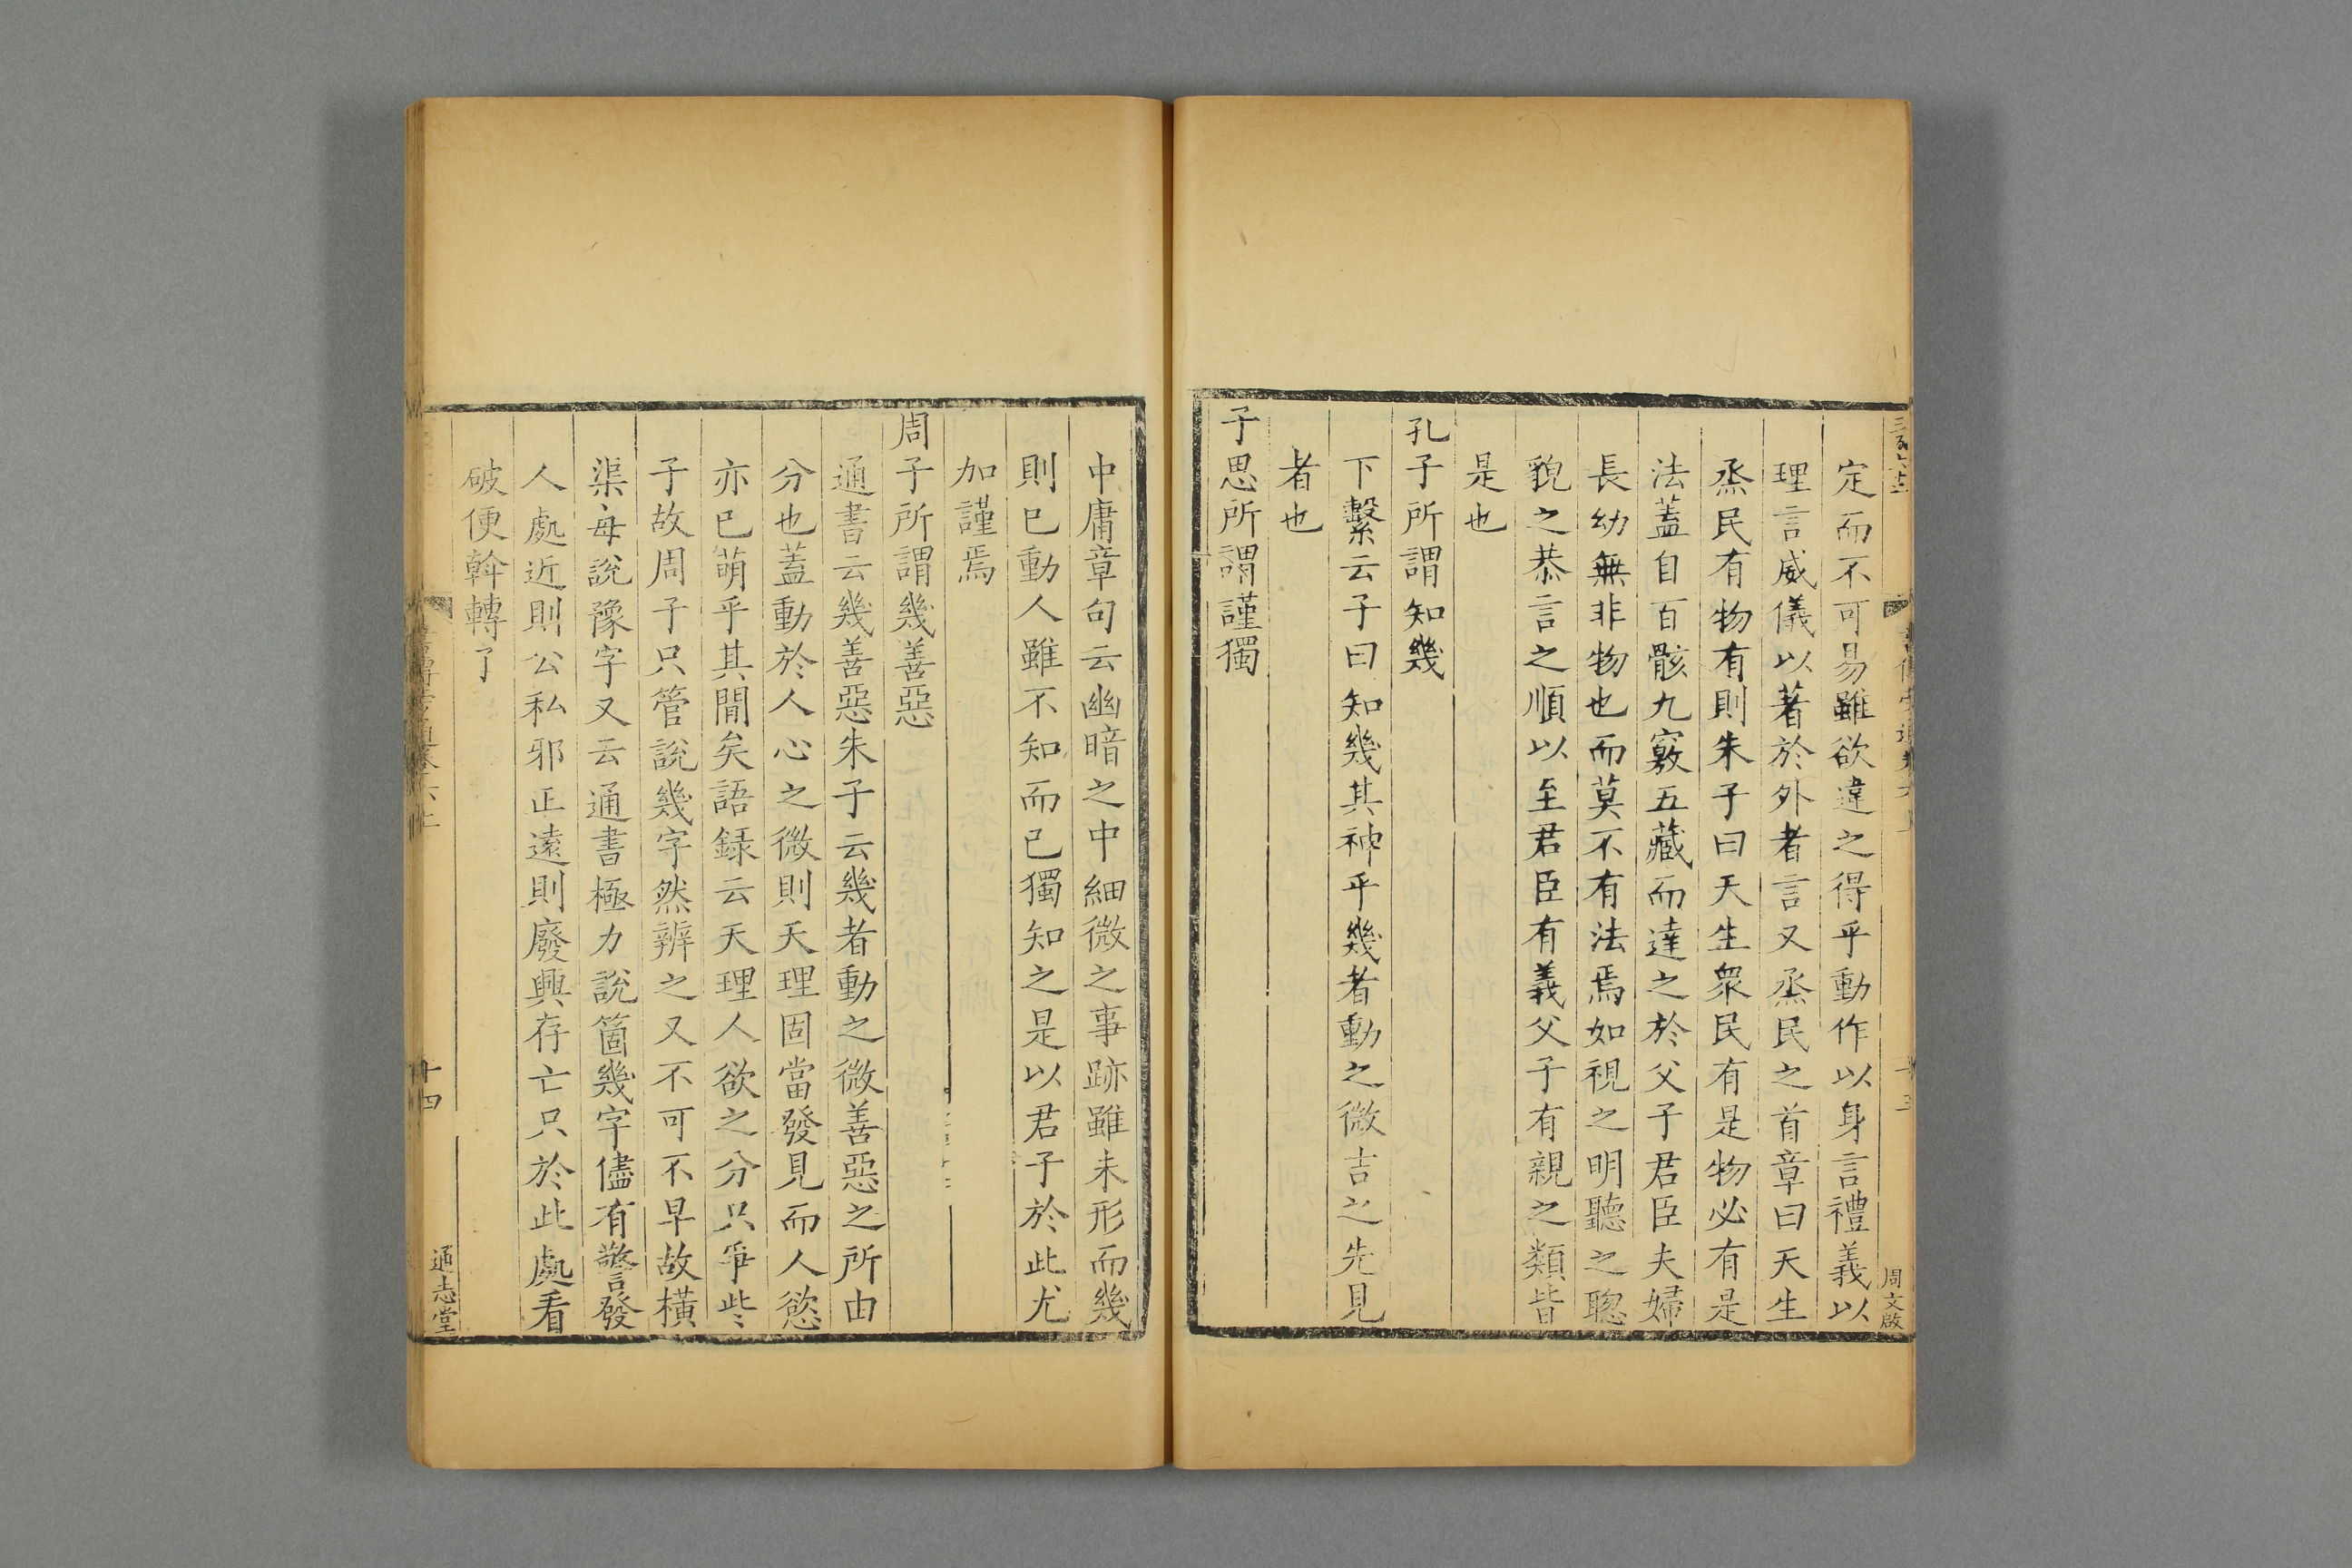 定而不可易雖欲違之得乎動作以身言禮義以
理言威儀以著於外者言又烝民之首章曰天生
烝民有物有則朱子曰天生衆民有是物必有是
法蓋自百骸九竅五藏而達之於父子君臣夫婦
長幼無非物也而莫不有法焉如視之明聽之聰
貌之恭言之順以至君臣有義父子有親之類皆
是也
孔子所謂知幾
下繫云子曰知幾其神乎幾者動之微吉之先見
者也
子思所謂謹獨
中庸章句云幽暗之中細微之事跡雖未形而幾
則已動人雖不知而已獨知之是以君子於此尤
加謹焉
周子所謂幾善惡
通書云幾善惡朱子云幾者動之微善惡之所由
分也蓋動於人心之微則天理固當發見而人慾
亦已萌乎其間矣語録云天理人欲之分只爭些
子故周子只管說幾字然辨之又不可不早故橫
渠每說豫字又云通書極力說箇幾字儘有警發
人處近則公私邪正遠則廢興存亡只於此處看
破便斡轉了
周文啟
十四
通志堂